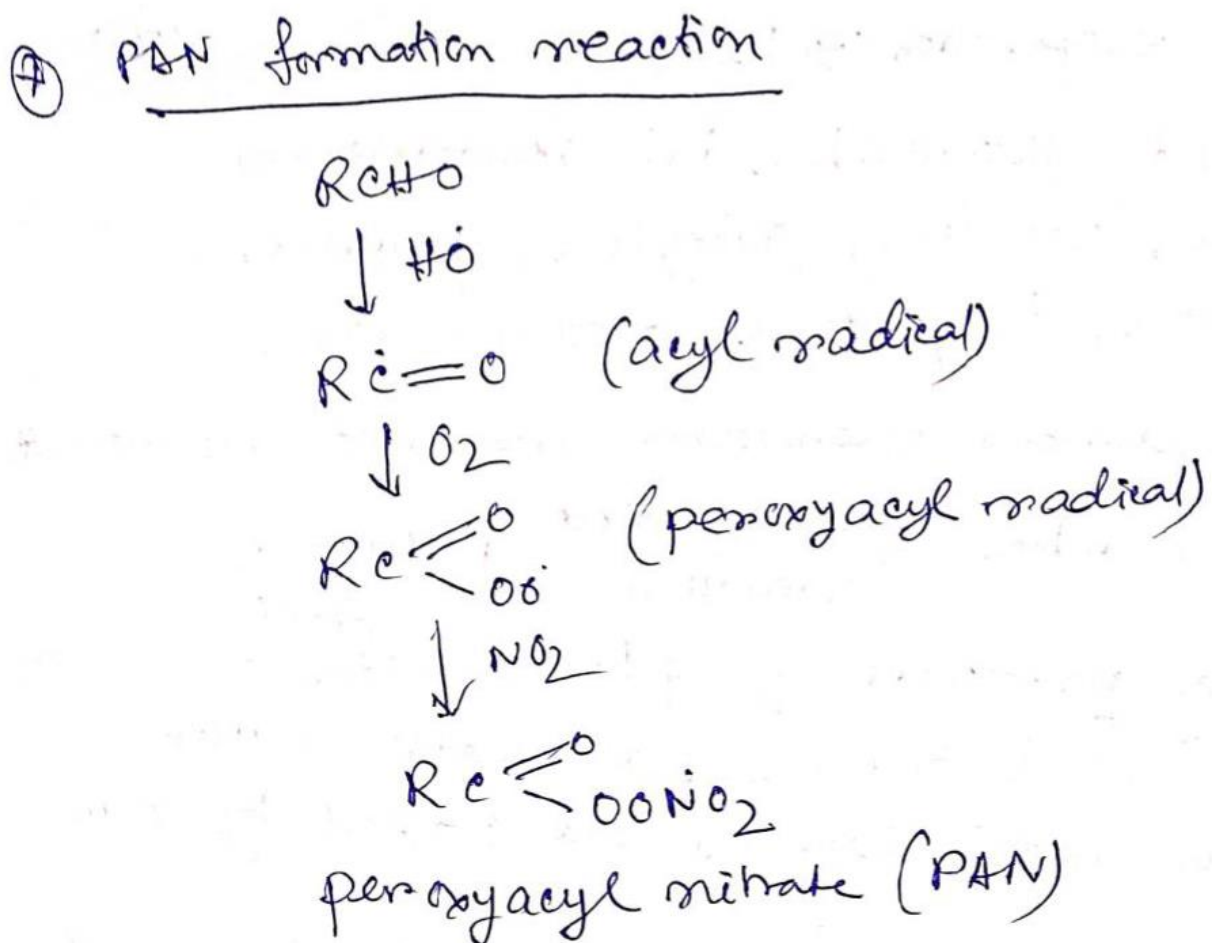 ⑦ PAN formation reaction
RCHO
↓ HȮ
RĊ=O (acyl radical)
↓ O2
RC=O (peroxyacyl radical)
OȮ
↓ NO2
RC=O
OOṄO2
peroxyacyl nitrate (PAN)